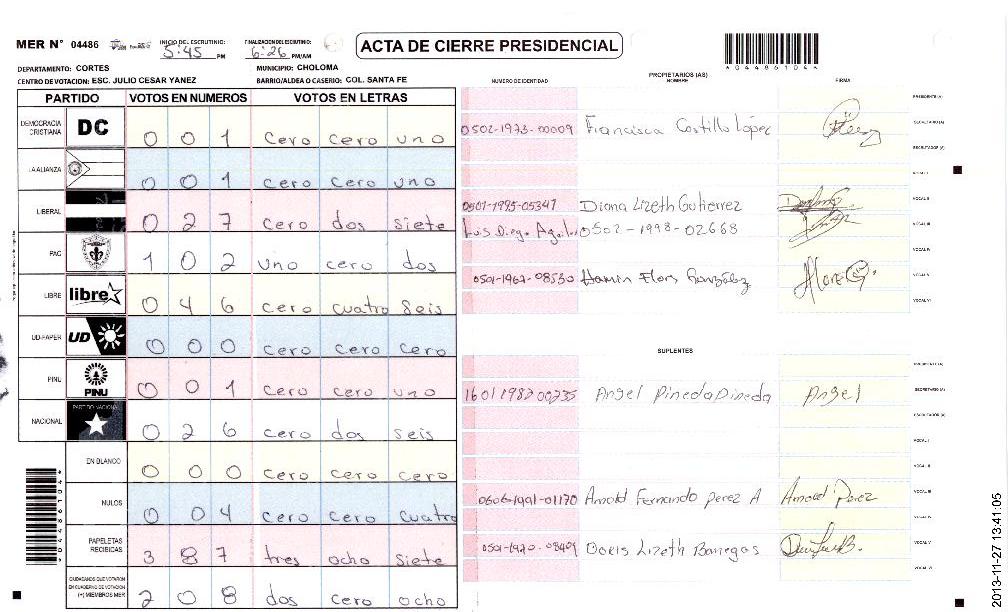 MER N° 04486 INICIO DEL ESCRUTINIO: 5:45 PM FINALIZACION DEL ESCRUTINIO: 6:26 PM/AM ACTA DE CIERRE PRESIDENCIAL
DEPARTAMENTO: CORTES MUNICIPIO: CHOLOMA
CENTRO DE VOTACION: ESC. JULIO CESAR YANEZ BARRIO/ALDEA O CASERIO: COL. SANTA FE
PARTIDO VOTOS EN NUMEROS VOTOS EN LETRAS
DEMOCRACIA CRISTIANA DC 0 0 1 cero cero uno
LA ALIANZA 0 0 1 cero cero uno
LIBERAL 0 2 7 cero dos siete
PAC 1 0 2 uno cero dos
LIBRE libre 0 4 6 cero cuatro seis
UD-FAPER UD 0 0 0 cero cero cero
PINU PINU 0 0 1 cero cero uno
NACIONAL PARTIDO NACIONAL 0 2 6 cero dos seis
EN BLANCO 0 0 0 cero cero cero
NULOS 0 0 4 cero cero cuatro
PAPELETAS RECIBIDAS 3 8 7 tres ocho siete
CIUDADANOS QUE VOTARON EN CUADERNO DE VOTACION (+) MIEMBROS MER 2 0 8 dos cero ocho
*04486104*
NUMERO DE IDENTIDAD PROPIETARIOS (AS) NOMBRE FIRMA
PRESIDENTE (A)
0502-1973-00009 Francisca Castillo López SECRETARIO (A)
ESCRUTADOR (A)
VOCAL I
0501-1995-05347 Diana Lizeth Gutierrez VOCAL II
Luis Diego Aguilar 0502-1998-02668 VOCAL III
VOCAL IV
0501-1962-08530 Flors González VOCAL V
VOCAL VI
SUPLENTES
PRESIDENTE (A)
1601 1982 00735 Angel Pineda Pineda Angel SECRETARIO (A)
ESCRUTADOR (A)
VOCAL I
VOCAL II
0606-1991-01170 Arnold Fernando Perez A Arnold Perez VOCAL III
VOCAL IV
0501-1970-08409 Doris Lizeth Banegas VOCAL V
VOCAL VI
2013-11-27 13:41:05